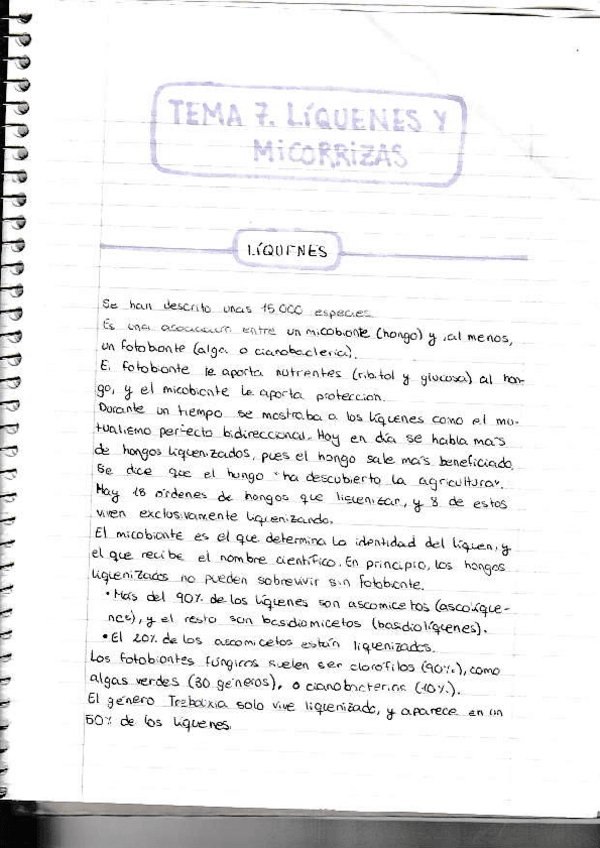 TEMA 7. LÍQUENES Y
MICORRIZAS
LÍQUENES
Se han descrito unas 15.000 especies.
Es una asociación entre un micobionte (hongo) y, al menos,
un fotobionte (alga o cianobacteria).
El fotobionte le aporta nutrentes (ribitol y glucosa) al hon-
go, y el micobionte le aporta protección.
Durante un tiempo se mostraba a los líquenes como el mu-
tualismo perfecto bidireccional. Hoy en día se habla más
de hongos liquenizados, pues el hongo sale más beneficiado.
Se dice que el hongo "ha descubierto la agricultura".
Hay 18 órdenes de hongos que liquenizan, y 8 de estos
viven exclusivamente liquenizando.
El micobionte es el que determina la identidad del líquen, y
el que recibe el nombre científico. En principio, los hongos
liquenizados no pueden sobrevivir sin fotobionte.
• Más del 90% de los líquenes son ascomicetos (ascolíque-
nes), y el resto son basidiomicetos (basidiolíquenes).
• El 20% de los ascomicetos están liquenizados.
Los fotobiontes fúngicos suelen ser clorófilos (90%), como
algas verdes (30 géneros), o cianobacterias (10%).
El género Trebouxia solo vive liquenizado, y aparece en un
50% de los líquenes.